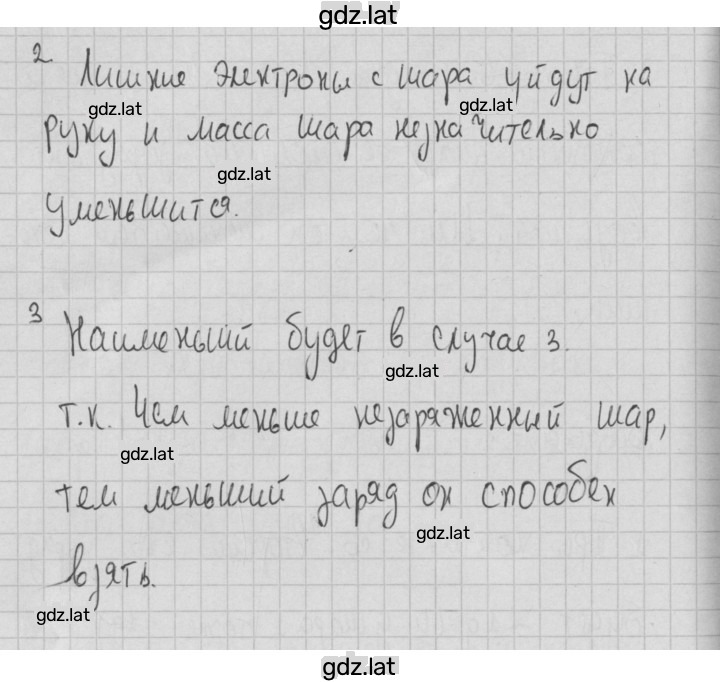 gdz.lat
2 Лишние электроны с шара уйдут на
gdz.lat gdz.lat
руку и масса шара незначительно
gdz.lat
уменьшится.
3 Наименьший будет в случае 3.
gdz.lat
т.к. Чем меньше незаряженный шар,
gdz.lat
тем меньший заряд он способен
gdz.lat
взять.
gdz.lat
gdz.lat